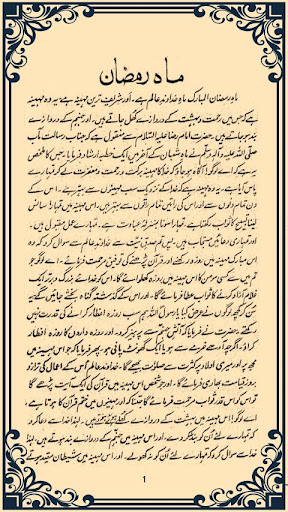 ماہ رمضان
ماہِ رمضان المبارک ماہِ خداوندِ عالم ہے۔ اور شریف ترین مہینہ ہے یہ وہ مہینہ
ہے کہ جس میں رحمت و بہشت کے دروازے کھل جاتے ہیں۔ اور جہنم کے دروازے
بند ہو جاتے ہیں۔ حضرت امام رضا علیہ السلام سے منقول ہے کہ جناب رسالت مآب
صلی اللہ علیہ و آلہ وسلم نے ماہ شعبان کے آخر میں ایک خطبہ ارشاد فرمایا۔ جس کا ملخص
یہ ہے کہ اے لوگو! آگاہ ہو جاؤ کہ خدا کا مہینہ برکت و رحمت و مغفرت لے کر تمہارے
پاس آیا ہے۔ یہ وہ مہینہ ہے کہ خدا کے نزدیک سب مہینوں سے بہتر ہے۔ اس کے
دن تمام دنوں سے اور اس کی راتیں تمام راتوں سے بہتر ہیں۔ اس مہینہ میں تمہارا سانس
لینا تسبیح کا ثواب رکھتا ہے۔ تمہارا سونا بمنزلہ عبادت ہے۔ تمہارے عمل مقبول ہیں۔
اور تمہاری دعائیں مستجاب ہیں۔ پس تم صدق نیت سے خداوندِ عالم سے سوال کرو کہ وہ
اس مبارک مہینہ میں روزے رکھنے اور تلاوت قرآن کرنے کی توفیق مرحمت فرمائے۔ اے لوگو جو
تم میں سے کسی مومن کا اس مہینہ میں روزہ کھلوائے گا۔ اس کو خدائے بزرگ و برتر ایک
غلام آزاد کرنے کا ثواب عطا فرمائے گا۔ اور اس کے گذشتہ گناہ بخش دیئے جائیں گے یہ
سن کر کچھ لوگوں نے عرض کیا۔ یا رسول اللہ ہم سب روزہ افطار کرانے کی قدرت نہیں
رکھتے۔ حضرت نے فرمایا کہ آتشِ جہنم سے پرہیز کرو۔ اور روزہ داروں کا روزہ افطار
کراؤ۔ اگرچہ آدھے خرمے سے ہو یا ایک گھونٹ پانی ہو۔ پھر فرمایا کہ جو اس مہینہ میں
مجھ پر اور میری اولاد پر کثرت سے صلوٰت بھیجے گا۔ خداوند عالم اس کے اعمال کی ترازو
بروز قیامت بھاری فرمائے گا۔ اور جو شخص اس مہینہ میں قرآن کی ایک آیت پڑھے گا
تو اس کو اس قدر ثواب مرحمت فرمائے گا جتنا کہ اور مہینوں میں ختم قرآن کا ہوتا ہے۔
اے لوگو! اس مہینہ میں بہشت کے دروازے کھلے ہوئے ہیں۔ لہٰذا خدا سے دعا کرو
کہ تمہارے لئے ان کو بند نہ کرے۔ اور اس مہینہ میں جہنم کے دروازے بند ہوتے ہیں۔ لہٰذا
خدا سے سوال کرو کہ تمہارے لئے ان کو نہ کھولے۔ اور اس مہینہ میں شیطان مقید ہوتے
1